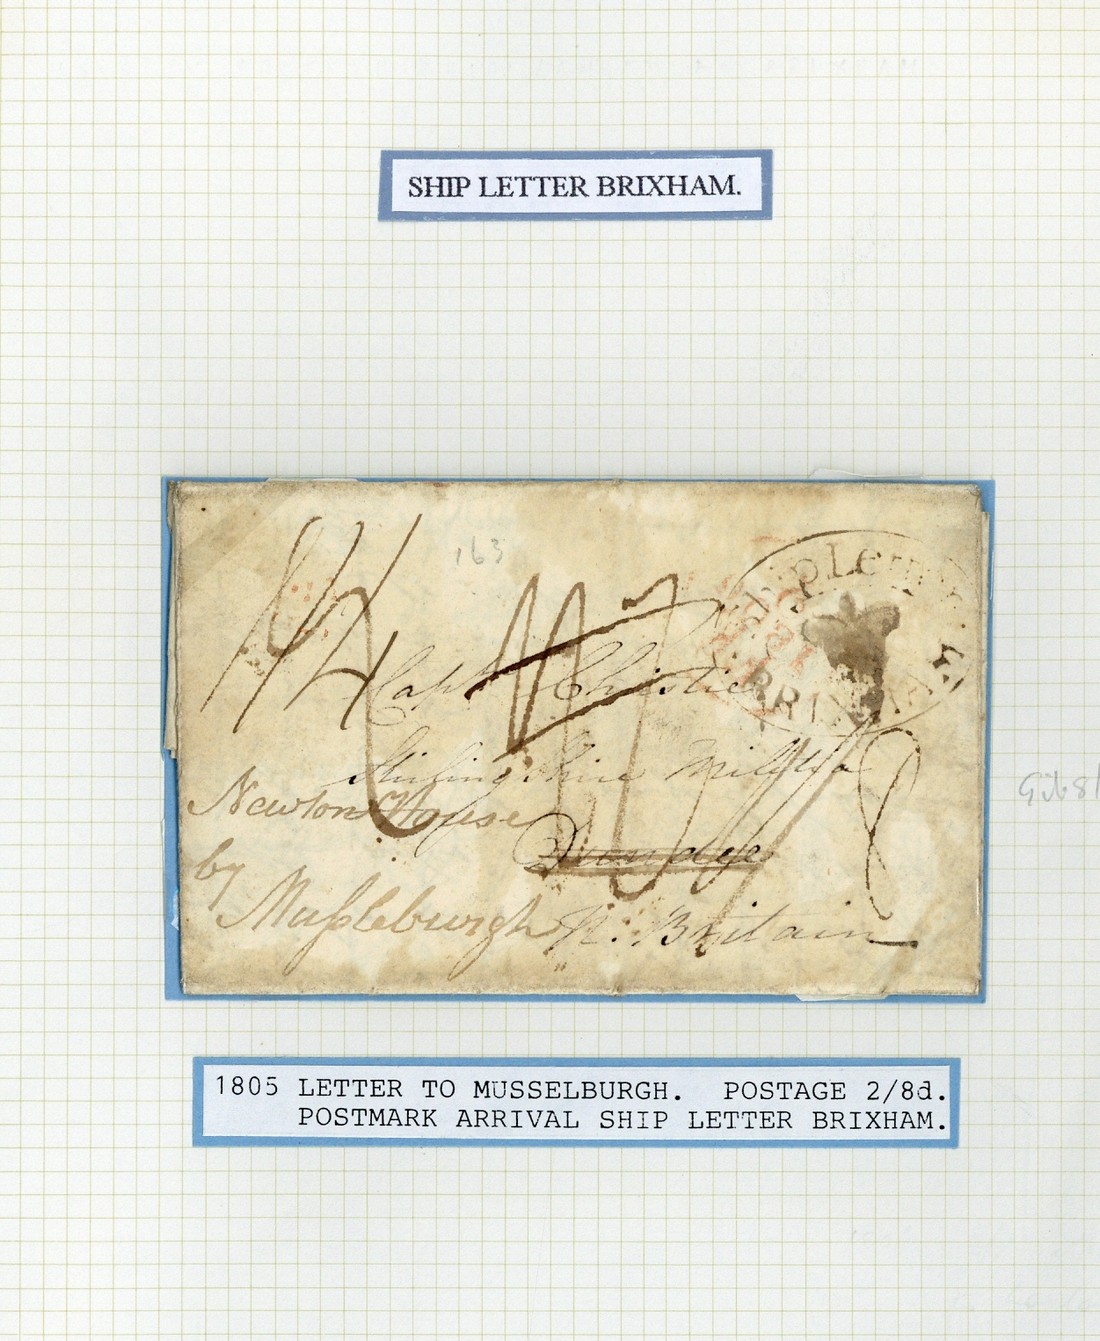 SHIP LETTER BRIXHAM.
163
Ship Letter
BRIXHAM
Capt Christie
Stirling Shire Militia
Newton House
Dundee
by
Mußleburgh N. Britain
8
1805 LETTER TO MUSSELBURGH. POSTAGE 2/8d.
POSTMARK ARRIVAL SHIP LETTER BRIXHAM.